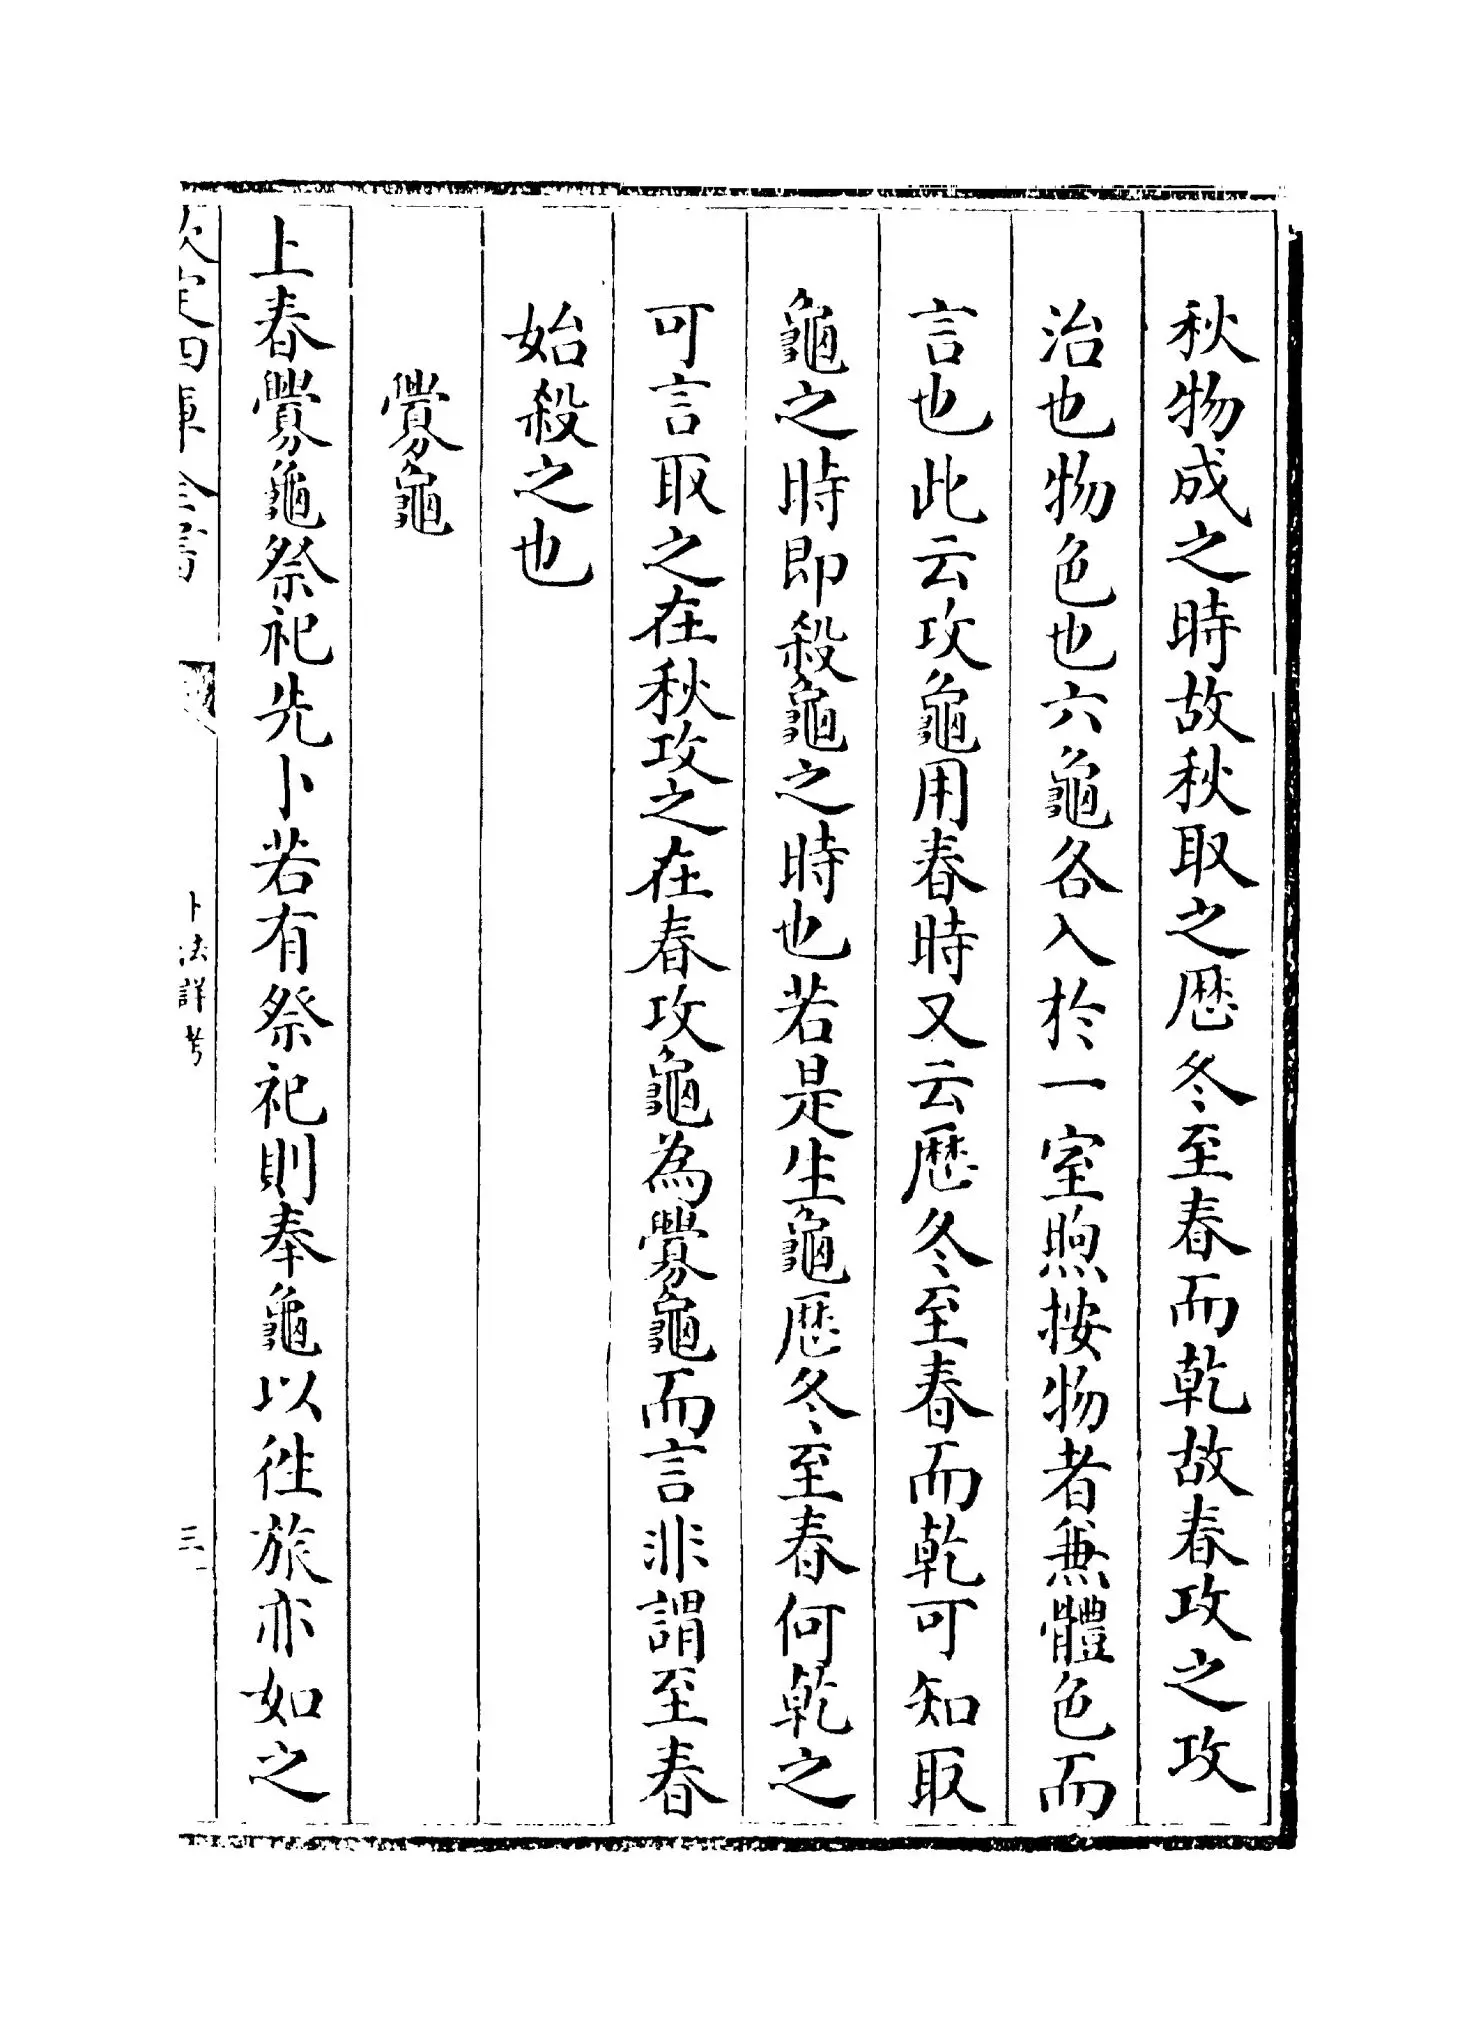 秋物成之時故秋取之厯冬至春而乾故春攻之攻
治也物色也六龜各入於一室煦按物者兼體色而
言也此云攻龜用春時又云厯冬至春而乾可知取
龜之時即殺龜之時也若是生龜厯冬至春何乾之
可言取之在秋攻之在春攻龜為釁龜而言非謂至春
始殺之也
釁龜
上春釁龜祭祀先卜若有祭祀則奉龜以往旅亦如之
欽定四庫全書
卜法詳考
三